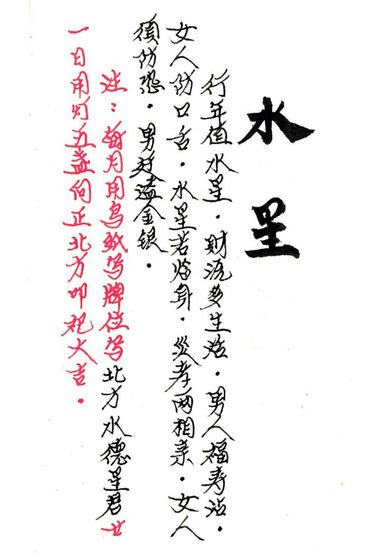 水星
行年值水星。財流多生活。男人福寿沾。
女人防口舌。水星若临身。災孝两相亲。女人
须防恐。男金银。
注：每月用烏纸写牌位写北方水德星君廿
一日用灯五盏向正北方叩祀大吉。